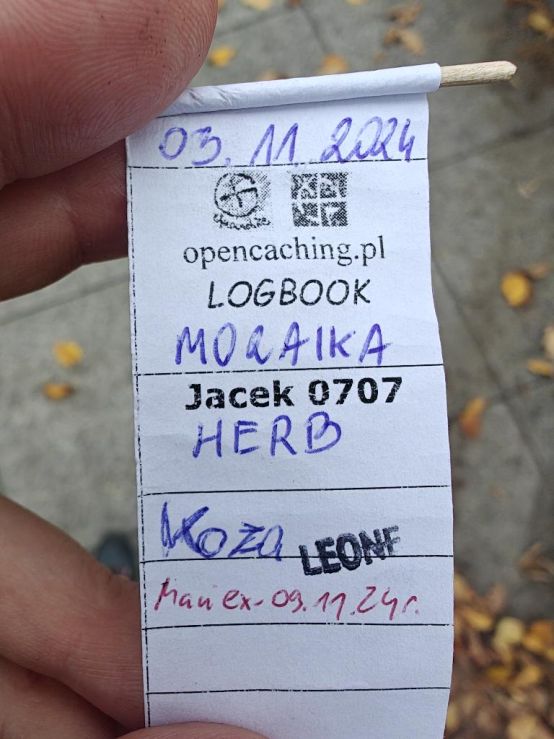 03.11.2024
opencaching.pl
LOGBOOK
MORAIKA
Jacek 0707
HERB
Koza
LEONF
Maniex-09.11.24r.